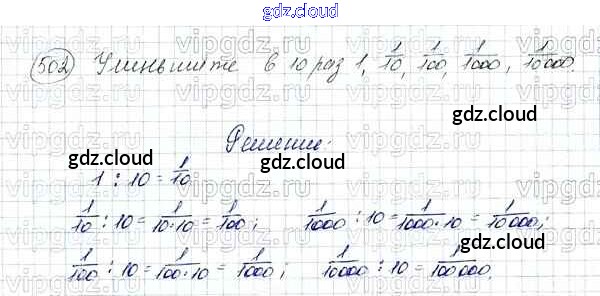 gdz.cloud
502 Уменьшите в 10 раз 1, 1/10, 1/100, 1/1000, 1/10000.
gdz.cloud
gdz.cloud
Решение:
gdz.cloud
gdz.cloud
1 : 10 = 1/10
1/10 : 10 = 1/10·10 = 1/100; 1/1000 : 10 = 1/1000·10 = 1/10000;
gdz.cloud
gdz.cloud
1/100 : 10 = 1/100·10 = 1/1000; 1/10000 : 10 = 1/100000.